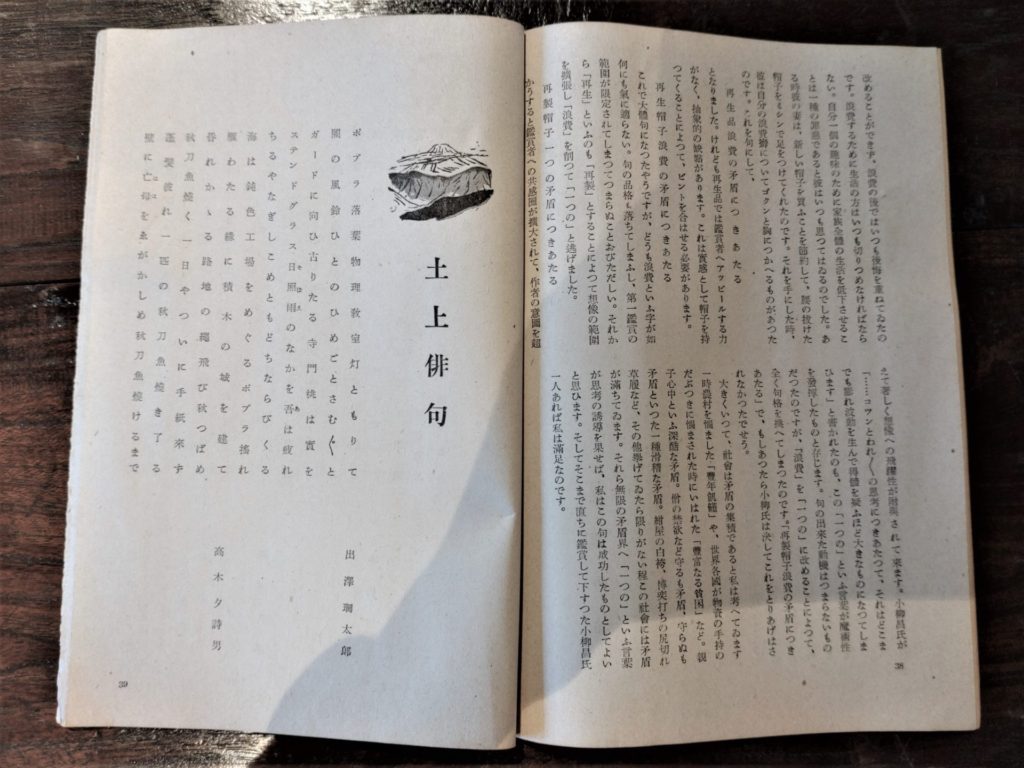 改めることができず、浪費の後ではいつも後悔を重ねてゐたの
です。浪費するために生活の方はいつも切りつめなければなら
ない。自分一個の趣味のために家族全體の生活を低下させるこ
とは一種の罪悪であると彼はいつも思つてはゐるのでした。あ
る時彼の妻は、新しい帽子を買ふことを節約して、腰の抜けた
帽子をもシンで足をつけてくれたのです。それを手にした時、
彼は自分の浪費癖についてゴクンと胸につかへるものがあつた
のです。これを句にして、
再生品浪費の矛盾につきあたる
となりました。けれども再生品では鑑賞者へアッピールする力
がなく、抽象的の缺點があります。これは實感として帽子を持
つてくることによつて、ピントを合はせる必要があります。
再生帽子浪費の矛盾につきあたる
これで大體句になつたやうですが、どうも浪費といふ字が如
何にも氣に適らない。句の品格も落ちてしまふし、第一鑑賞の
範圍が限定されてしまつてつまらぬことおびたゞしい。それか
ら「再生」といふのも「再製」とすることによつて想像の範圍
を擴張し「浪費」を削つて「一つの」と逃げました。
再製帽子一つの矛盾につきあたる
かうすると鑑賞者への共感圏が擴大されて、作者の意圖を超
えて著しく想像への飛躍性が附與されて來ます。小柳昌氏が
「……コツンとわれ〳〵の思考につきあたつて、それはどこま
でも膨れ波動を生んで得體を疑ふほど大きなものになつてしま
ひます」と書かれたのも、この「一つの」といふ言葉が魔術性
を發揮したものと存じます。句の出來た動機はつまらないもの
だつたのですが、「浪費」を「一つの」に改めることによつて、
全く句格を換へてしまつたのです。「再製帽子浪費の矛盾につき
あたる」で、もしあつたら小柳氏は決してこれをとりあげはさ
れなかつたでせう。
大きくいつて、社會は矛盾の集積であると私は考へてゐます
一時農村を惱ました「豐年飢饉」や、世界各國が物資の手持の
だぶつきに惱まされた時にいはれた「豐富なる貧困」など。親
子心中といふ深酷な矛盾。僧の禁欲など守るも矛盾、守らぬも
矛盾といつた一種滑稽な矛盾。紺屋の白袴、博奕打ちの尻切れ
草履など、その他擧げてゐたら限りがない程この社會には矛盾
が滿ちてゐます。それら無限の矛盾界へ「一つの」といふ言葉
が思考の誘導を果せば、私はこの句は成功したものとしてよい
と思ひます。そしてそこまで直ちに鑑賞して下すつた小柳昌氏
一人あれば私は滿足なのです。
38
土上俳句
ポプラ落葉物理教室灯ともりて
圈の風鈴ひとのひめごとさむ〴〵と
ガードに向ひ古りたる寺門桃は實を
ステンドグラス日照雨のなかを吾は疲れ
ちるやなぎしこめともどちならびくる
出澤珊太郎
海は鈍色工場をめぐるポプラ搖れ
雁わたる緣に積木の城を建て
昏れかゝる路地の繩飛び秋つばめ
秋刀魚燒く一日やつひに手紙來ず
蓬髮疲れ一匹の秋刀魚燒き了る
壁に亡母をゑがかしめ秋刀魚燒けるまで
高木夕詩男
39